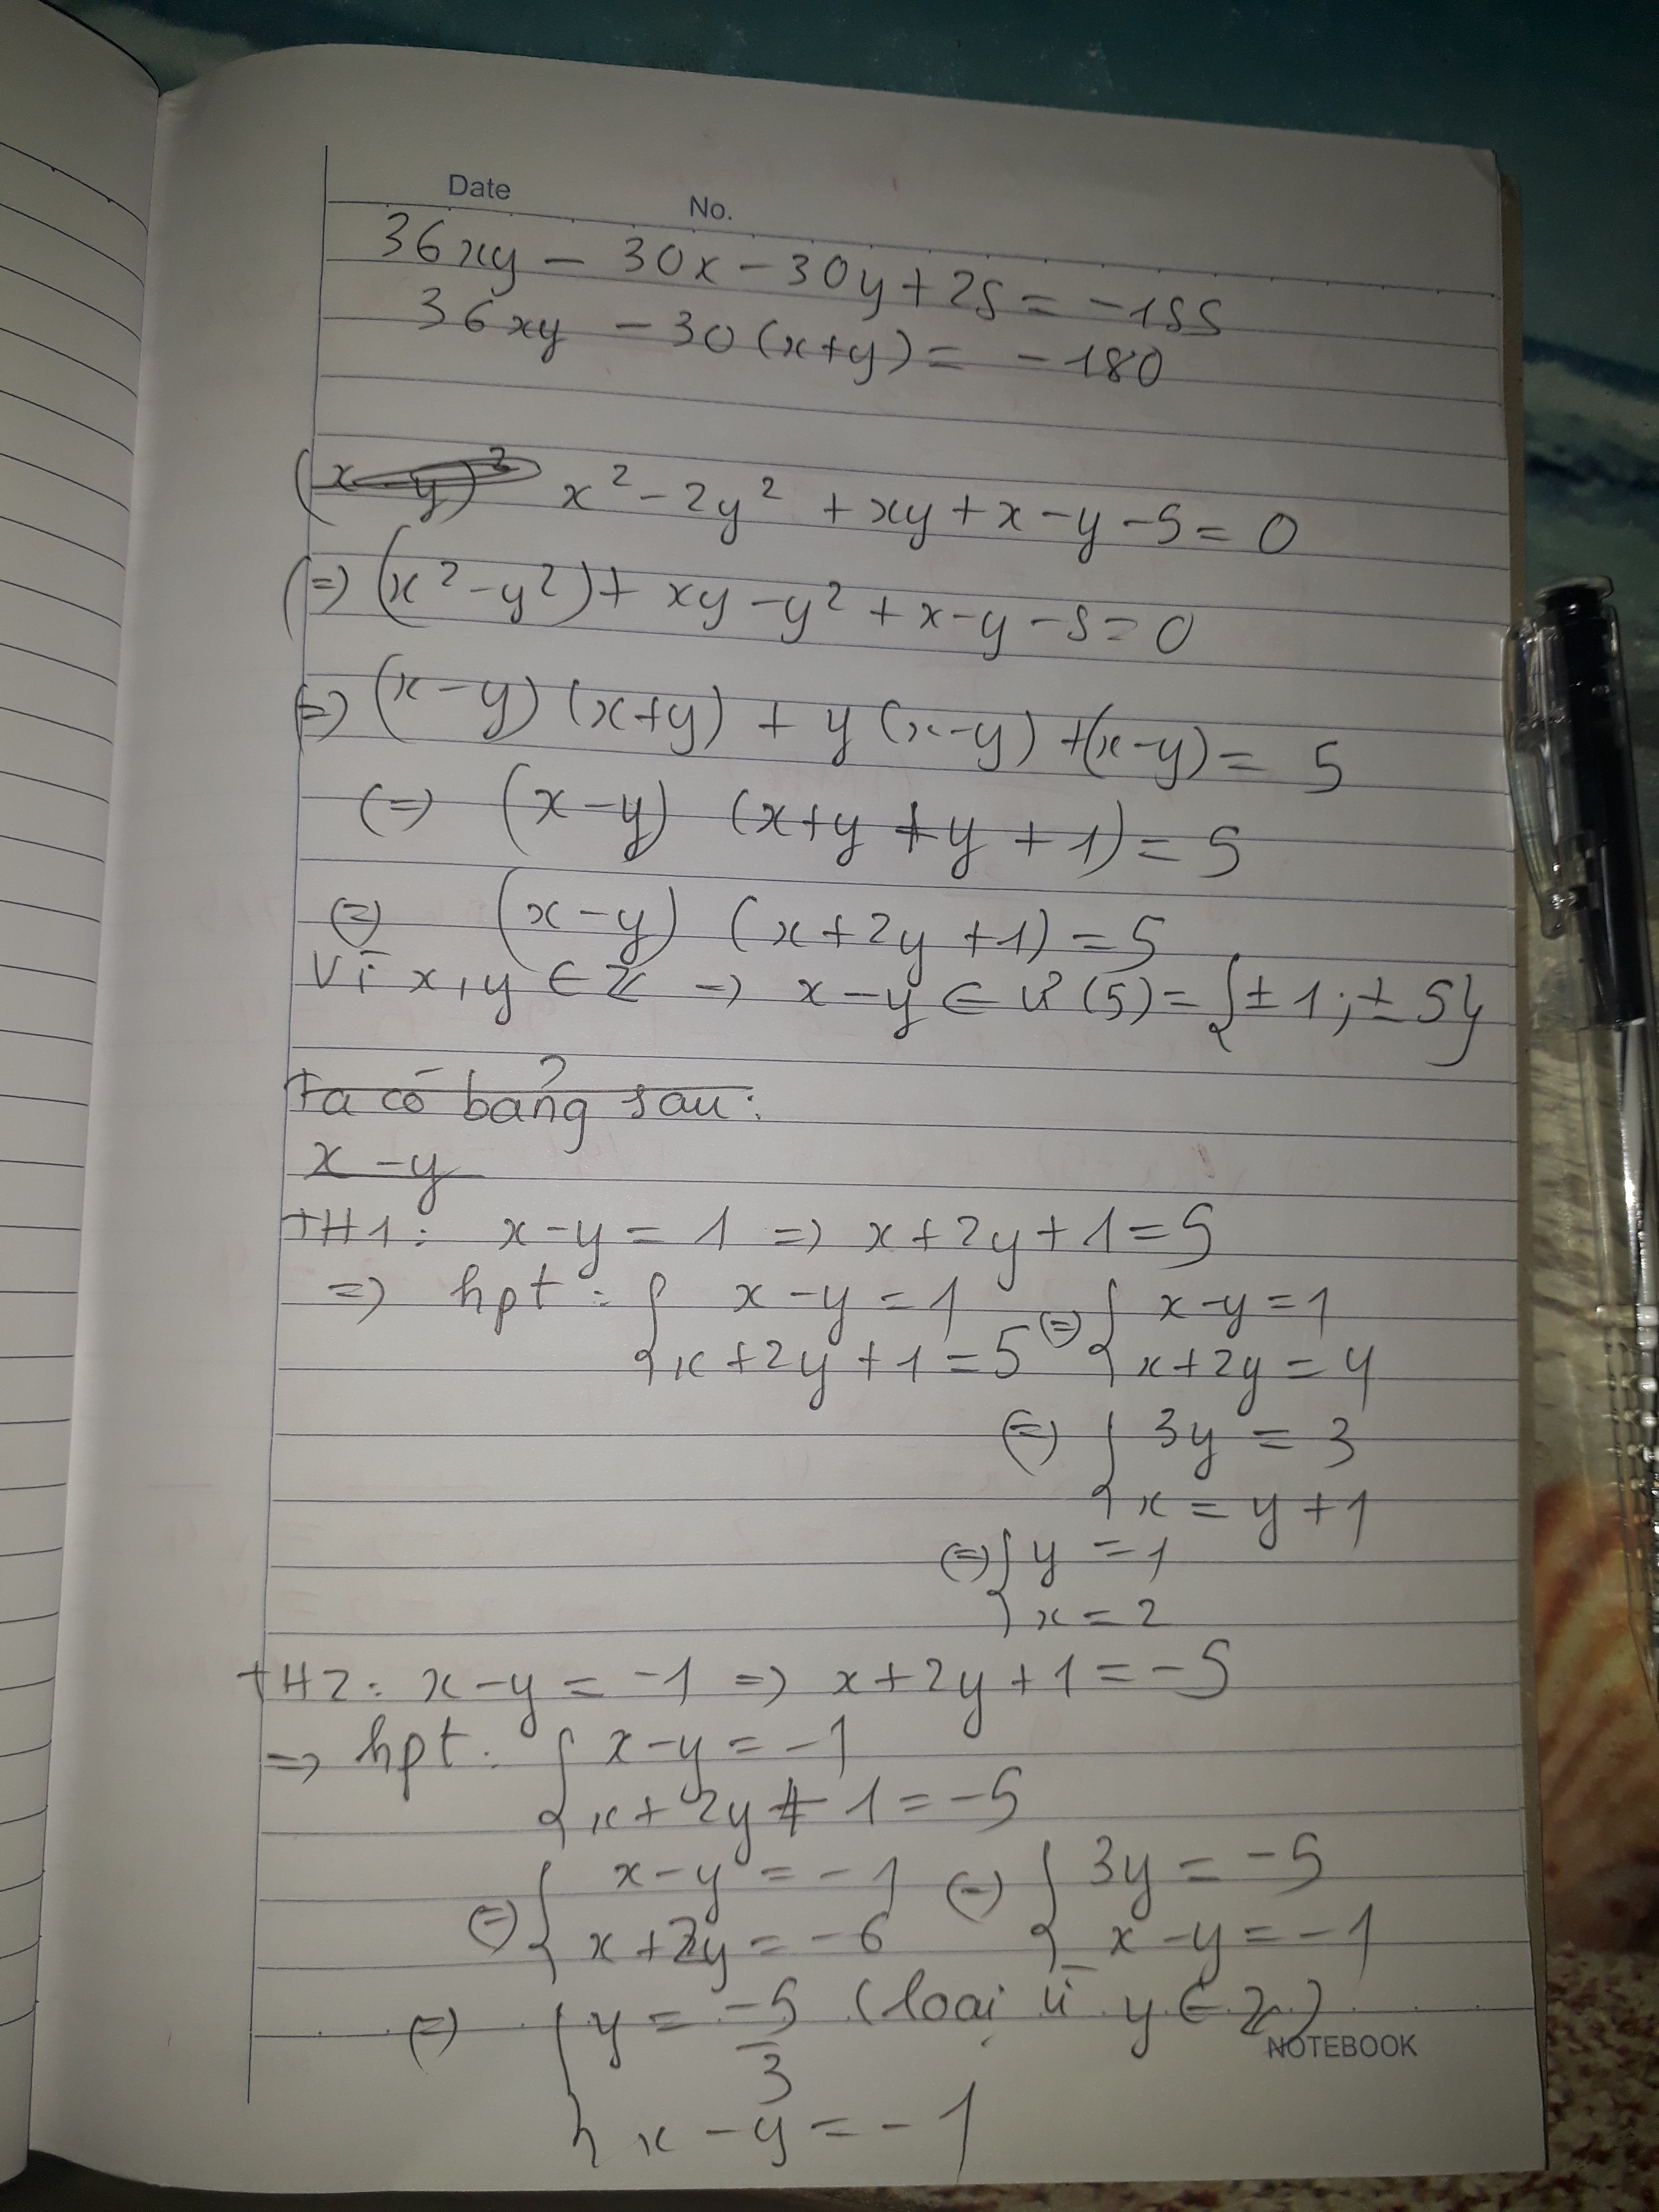 Date No.
36xy - 30x - 30y + 25 = -155
36xy - 30(x+y) = -180
(x-y)² x² - 2y² + xy + x - y - 5 = 0
(=) (x² - y²) + xy - y² + x - y - 5 = 0
(=) (x-y) (x+y) + y(x-y) + (x-y) = 5
(=) (x-y) (x+y+y+1) = 5
(=) (x-y) (x+2y+1) = 5
Vì x,y ∈ Z => x-y ∈ Ư(5) = {±1; ±5}
Ta có bảng sau:
x-y
TH1: x-y = 1 => x+2y+1 = 5
=> hpt: { x-y = 1 (=) { x-y = 1
x+2y+1 = 5 x+2y = 4
(=) { 3y = 3
x = y+1
(=) { y = 1
x = 2
TH2: x-y = -1 => x+2y+1 = -5
=> hpt: { x-y = -1
x+2y+1 = -5
(=) { x-y = -1 (=) { 3y = -5
x+2y = -6 x-y = -1
(=) { y = -5/3 (loại vì y ∈ Z)
NOTEBOOK
x-y = -1